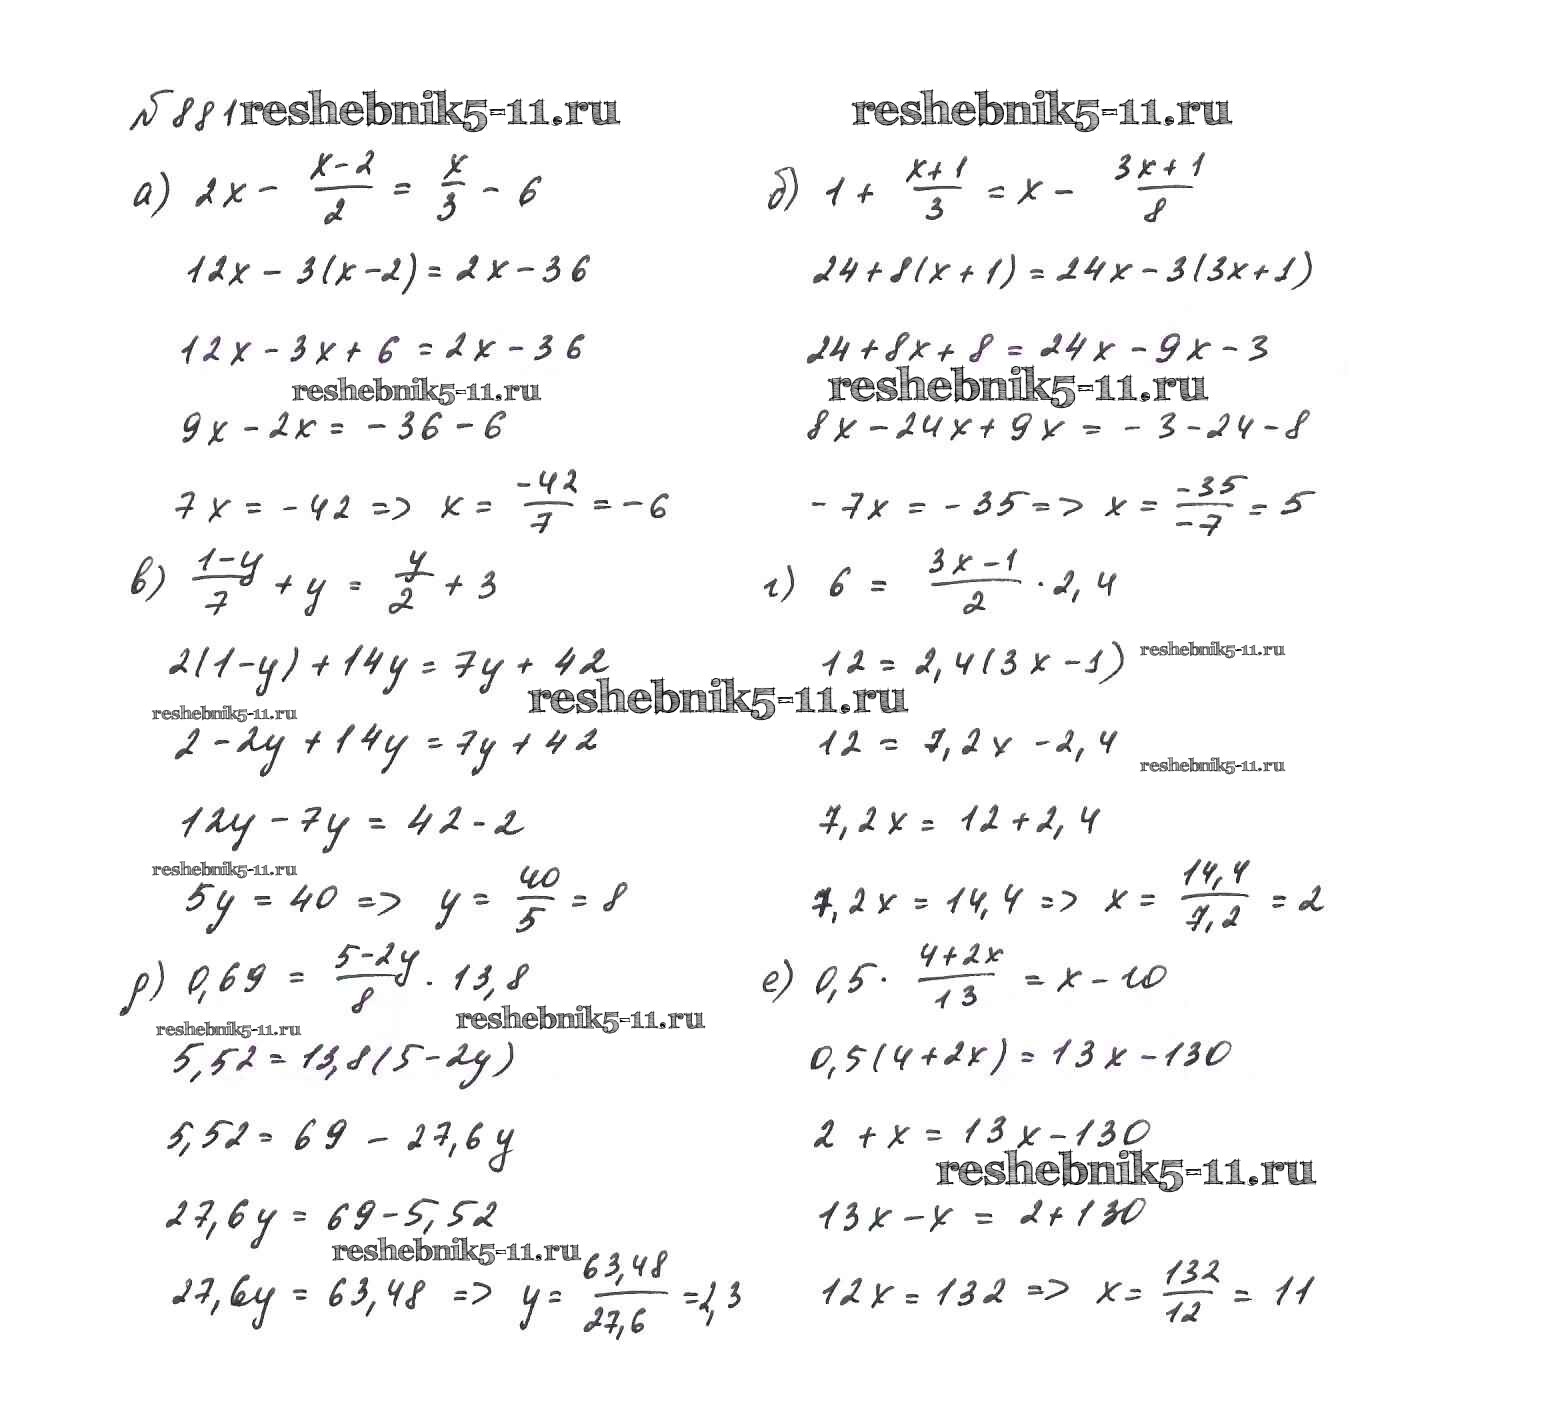 №881 reshebnik5-11.ru reshebnik5-11.ru
а) 2x - (x-2)/2 = x/3 - 6
12x - 3(x-2) = 2x - 36
12x - 3x + 6 = 2x - 36
reshebnik5-11.ru
9x - 2x = -36 - 6
7x = -42 => x = -42/7 = -6
б) 1 + (x+1)/3 = x - (3x+1)/8
24 + 8(x+1) = 24x - 3(3x+1)
24 + 8x + 8 = 24x - 9x - 3
reshebnik5-11.ru
8x - 24x + 9x = -3 - 24 - 8
-7x = -35 => x = -35/-7 = 5
в) (1-y)/7 + y = y/2 + 3
2(1-y) + 14y = 7y + 42
reshebnik5-11.ru
reshebnik5-11.ru
2 - 2y + 14y = 7y + 42
12y - 7y = 42 - 2
reshebnik5-11.ru
5y = 40 => y = 40/5 = 8
г) 6 = (3x-1)/2 · 2,4
12 = 2,4(3x-1) reshebnik5-11.ru
12 = 7,2x - 2,4
reshebnik5-11.ru
7,2x = 12 + 2,4
7,2x = 14,4 => x = 14,4/7,2 = 2
д) 0,69 = (5-2y)/8 · 13,8
reshebnik5-11.ru
reshebnik5-11.ru
5,52 = 13,8(5-2y)
5,52 = 69 - 27,6y
27,6y = 69 - 5,52
reshebnik5-11.ru
27,6y = 63,48 => y = 63,48/27,6 = 2,3
е) 0,5 · (4+2x)/13 = x - 10
0,5(4+2x) = 13x - 130
2 + x = 13x - 130
reshebnik5-11.ru
13x - x = 2 + 130
12x = 132 => x = 132/12 = 11